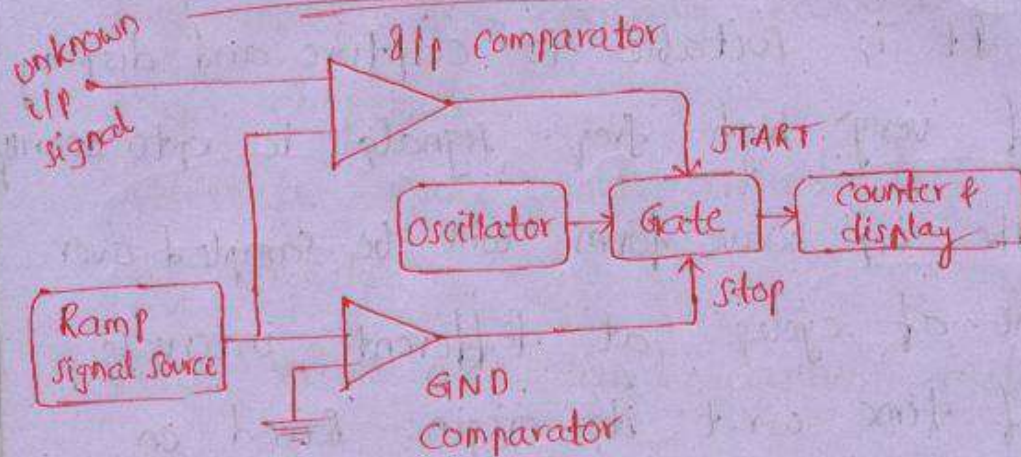 unknown
i/p
signal
i/p comparator
START
Oscillator
Gate
counter &
display
Stop
Ramp
signal source
GND.
Comparator